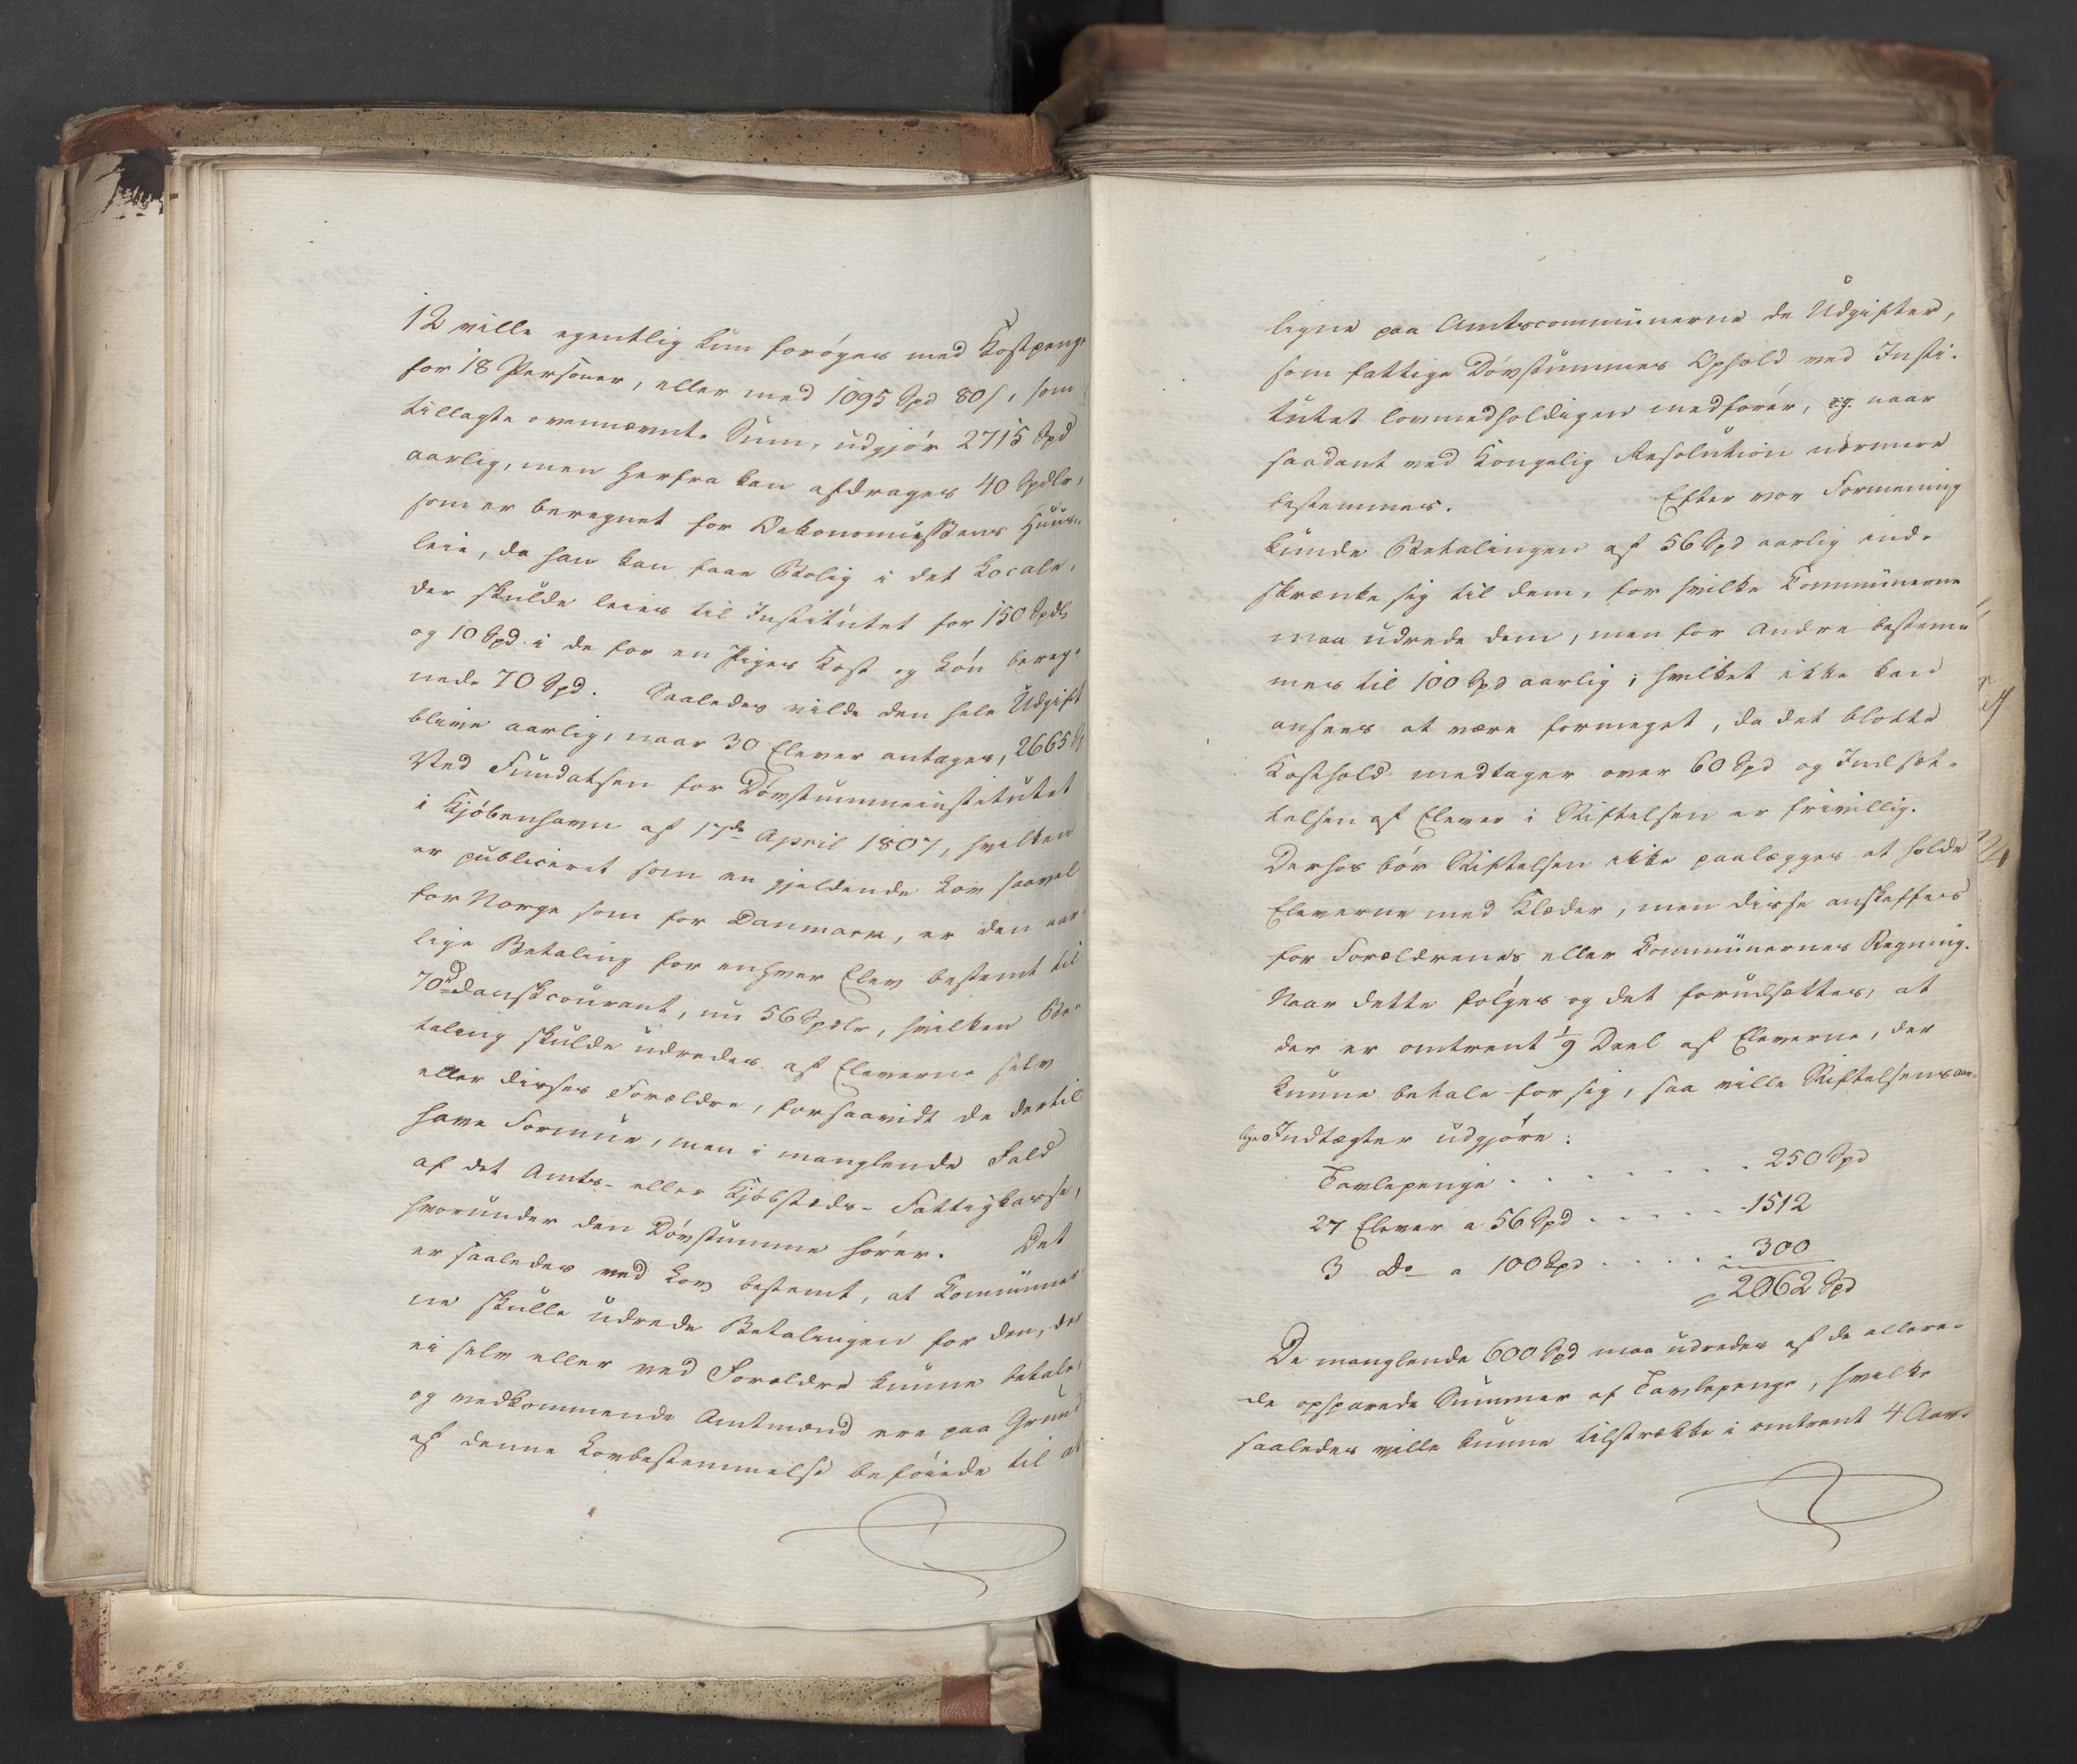 12 ville egentlig kun forøges med Kostpenge
for 18 Personer, eller med 1095 Spd 80 s, som
tillagte ovennævnte Sum, udgjør 2715 Spd
aarlig, men herfra kan afdrages 40 Spdlr,
som er beregnet for Oekonomussens Huus-
leie, da han kan faae Bolig i det Locale,
der skulde leies til Institutet for 150 Spdlr
og 10 Spd. i de for en Piges Kost og Løn bereg-
nede 70 Spd. Saaledes vilde den hele Udgift
blive aarlig, naar 30 Elever antages, 2665 Sp
Ved Fundatsen for Døvstummeinstitutet
i Kjøbenhavn af 17de April 1807, hvilken
er publiceret som en gjeldende Lov saavel
for Norge som for Danmark, er den aar-
lige Betaling for enhver Elev bestemt til
70 rd danskcourant, nu 56 Spdlr, hvilken Be-
taling skulde udredes af Eleverne selv
eller disses Forældre, forsaavidt de dertil
have Formue, men i manglende Fald
af det Amts- eller Kjøbstæds-Fattigkasse,
hvorunder den Døvstumme hører. Det
er saaledes ved Lov bestemt, at Communer-
ne skulle udrede Betalingen for den, der
ei selv eller ved Forældre kunne betale,
og vedkommende Amtmænd ere paa Grund
af denne Lovbestemmelse beføiede til at
ligne paa Amtscommunerne de Udgifter,
som fattige Døvstummes Ophold ved Insti-
tutet lovmedholdigen medfører, og naar
saadant ved Kongelig Resolution nærmere
bestemmes. Efter vor Formening
kunde Betalingen af 56 Spd aarlig ind-
skrænke sig til dem, for hvilke Communerne
maa udrede dem, men for Andre bestem-
mes til 100 Spd aarlig; hvilket ikke kan
ansees at være formeget, da det blotte
Kosthold medtager over 60 Spd og Indsæt-
telsen af Elever i Stiftelsen er frivillig.
Derhos bør Stiftelsen ikke paalægges at holde
Eleverne med Klæder, men disse anskaffes
for Forældrenes eller Communernes Regning.
Naar dette følges og det forudsættes, at
der er omtrent 1/9 Deel af Eleverne, der
kunne betale for sig, saa ville Stiftelsens aar-
lige Indtægter udgjøre:
Tavlepenge . . . . . . . 250 Spd
27 Elever a 56 Spd . . . . . . 1512
3 Do a 100 Spd . . . . . 300
= 2062 Spd
De manglende 600 Spd maa udredes af de allere-
de opsparede Summer af Tavlepenge, hvilke
saaledes ville kunne tilstrække i omtrent 4 Aar.